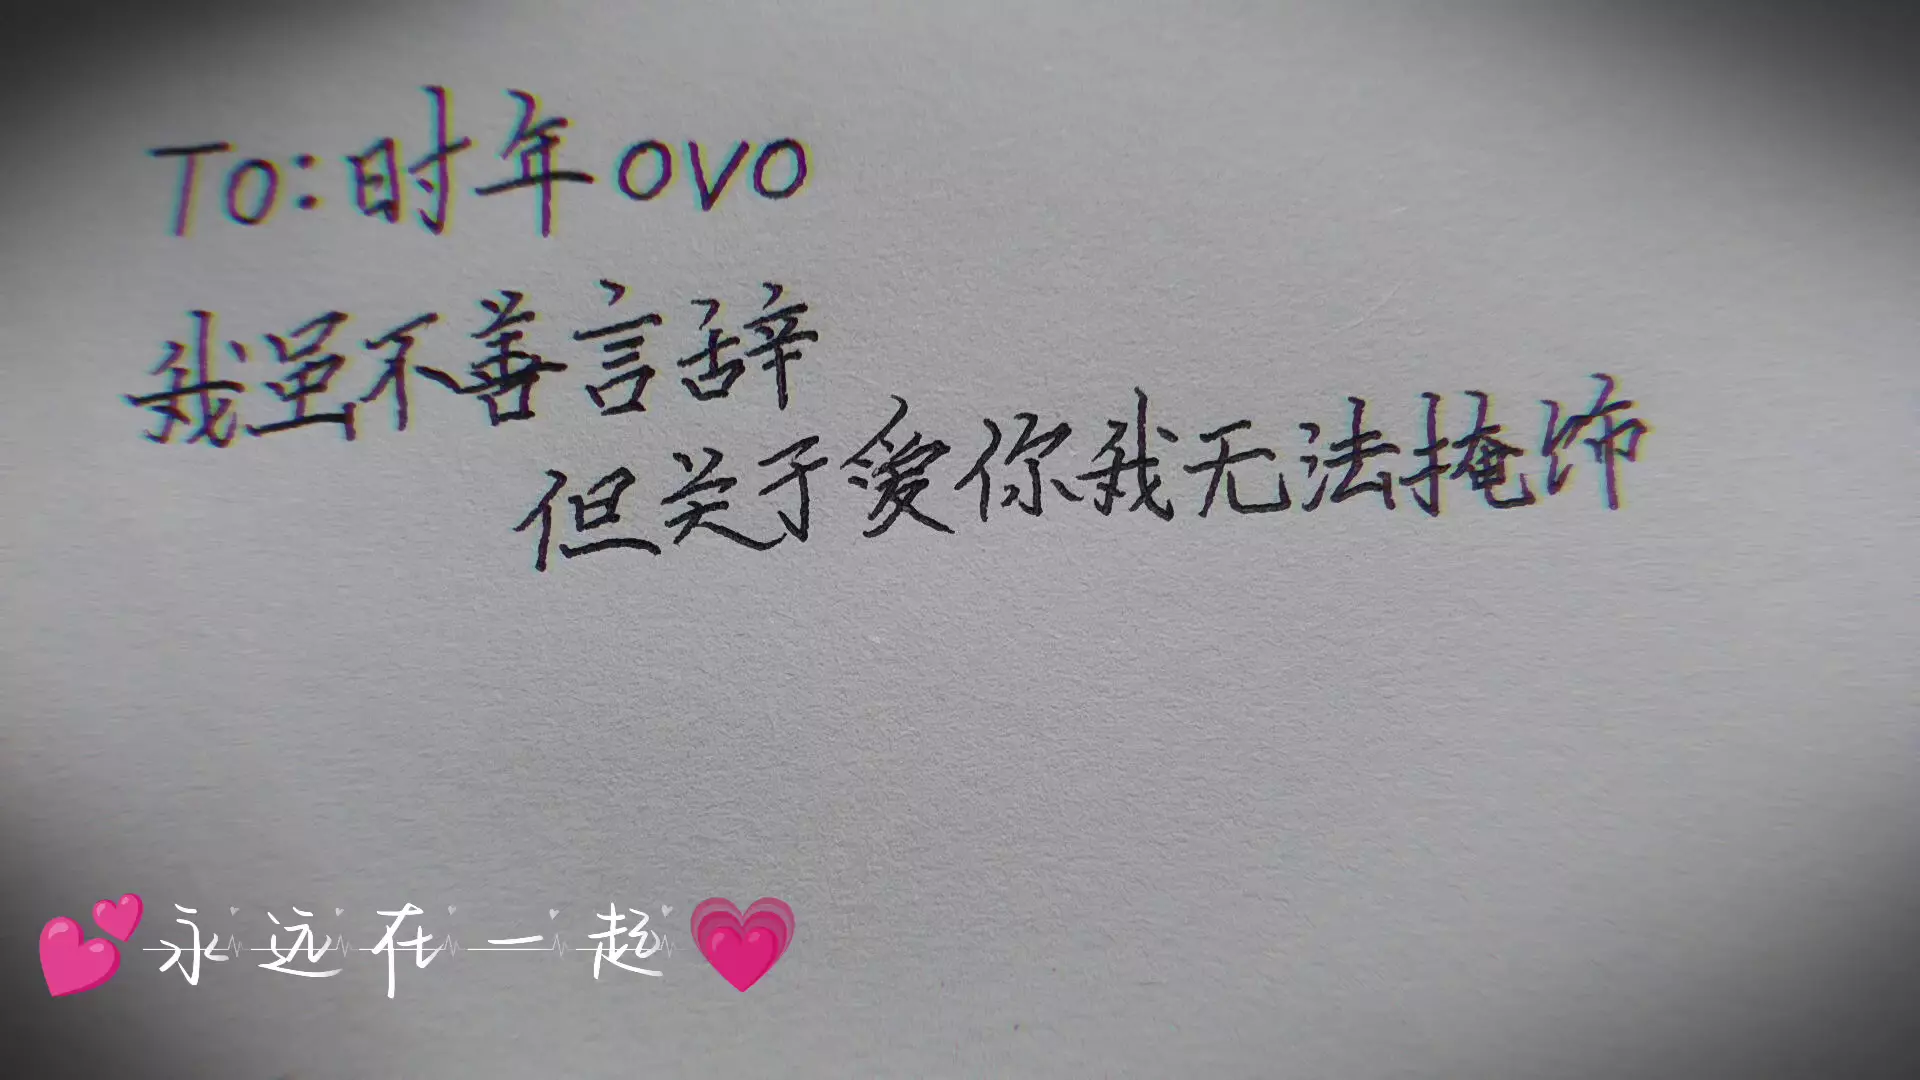 To:时年ovo
我虽不善言辞
但关于愛你我无法掩饰
💕永远在一起💗